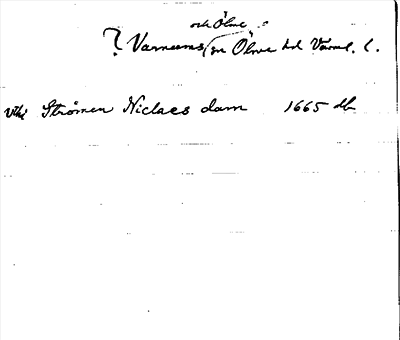 och Ölme s
? Varnums sn Ölme hd Värml. l.
vthi Strømen Niclaes dam 1665 db